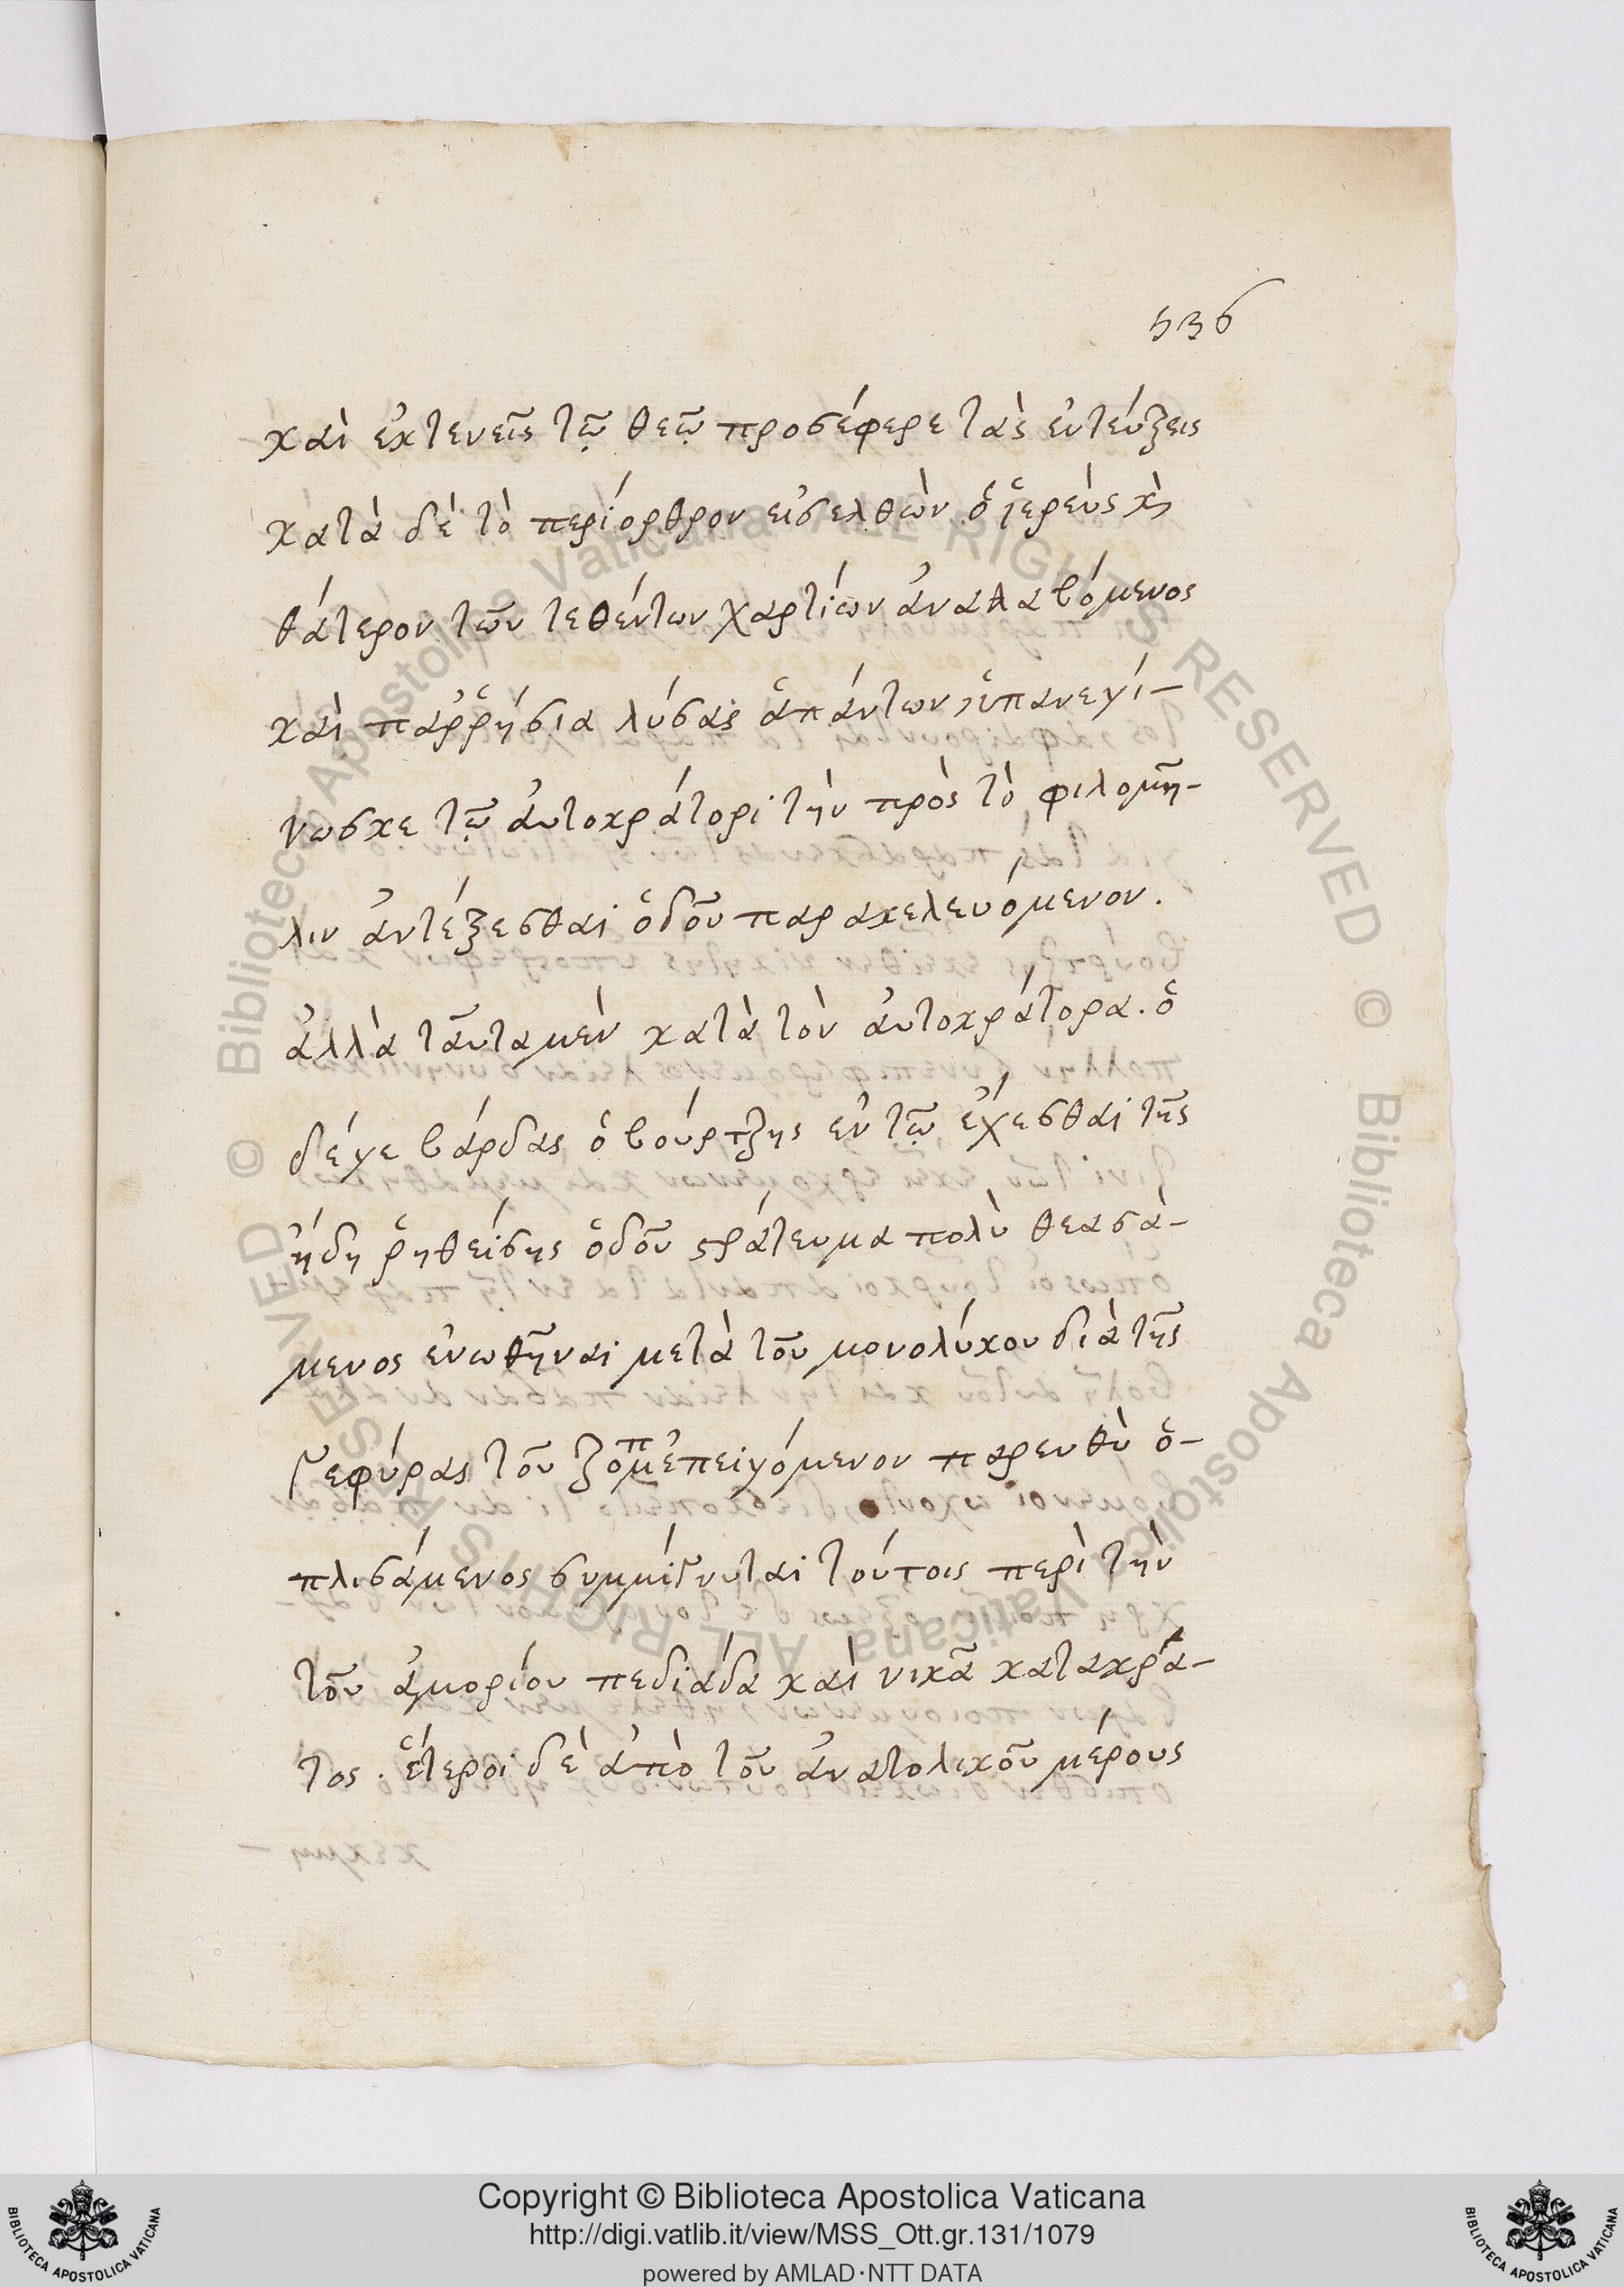 536
καὶ ἐκτενεῖς τῷ θεῷ προσέφερε τὰς ἐντεύξεις
κατὰ δὲ τὸ περίορθρον εἰσελθὼν ὁ ἱερεὺς κὶ
θάτερον τῶν τεθέντων χαρτίων ἀναλαβόμενος
καὶ παῤῥησια λύσας ἁπάντων, ὑπανεγί-
νωσκε τῷ ἀυτοκράτορι τὴν πρὸς τὸ φιλομη-
λιν ἀντέξεσθαι ὁδοῦ παρακελευόμενον.
ἀλλὰ ταῦτα μὲν κατὰ τὸν ἀυτοκράτορα. ὁ
δέγε βάρδας ὁ βούρτζης ἐν τῷ ἔχεσθαι τῆς
ἤδη ῥηθείσης ὁδοῦ στράτευμα πολὺ θεασά-
μενος ἐνωθῆναι μετὰ τοῦ μονολύκου διὰ τῆς
γεφύρας τοῦ ζομπ ἐπειγόμενον παρευθὺ ὁ-
πλισάμενος συμμίγνυται τούτοις περὶ τὴν
τοῦ ἀμορίου πεδιάδα καὶ νικᾶ κατακρά-
τος. ἕτεροι δὲ ἀπὸ τοῦ ἀνατολικοῦ μέρους
Copyright © Biblioteca Apostolica Vaticana
http://digi.vatlib.it/view/MSS_Ott.gr.131/1079
powered by AMLAD·NTT DATA
BIBLIOTECA APOSTOLICA VATICANA
BIBLIOTECA APOSTOLICA VATICANA
© Biblioteca Apostolica Vaticana ALL RIGHTS RESERVED
© Biblioteca Apostolica Vaticana ALL RIGHTS RESERVED